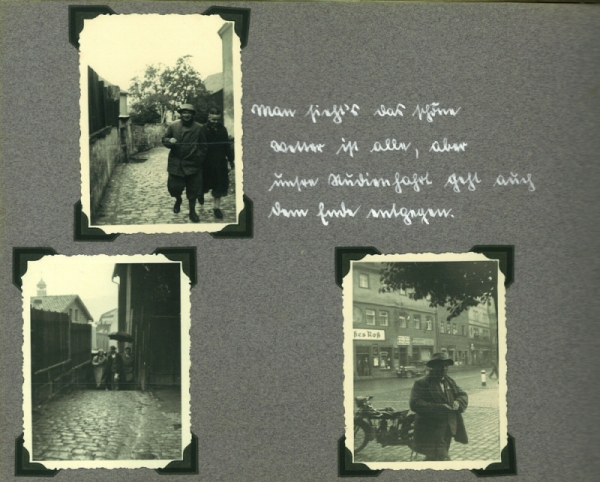 Man sieht's das schöne
Wetter ist alle, aber
unsre Studienfahrt geht auch
dem Ende entgegen.